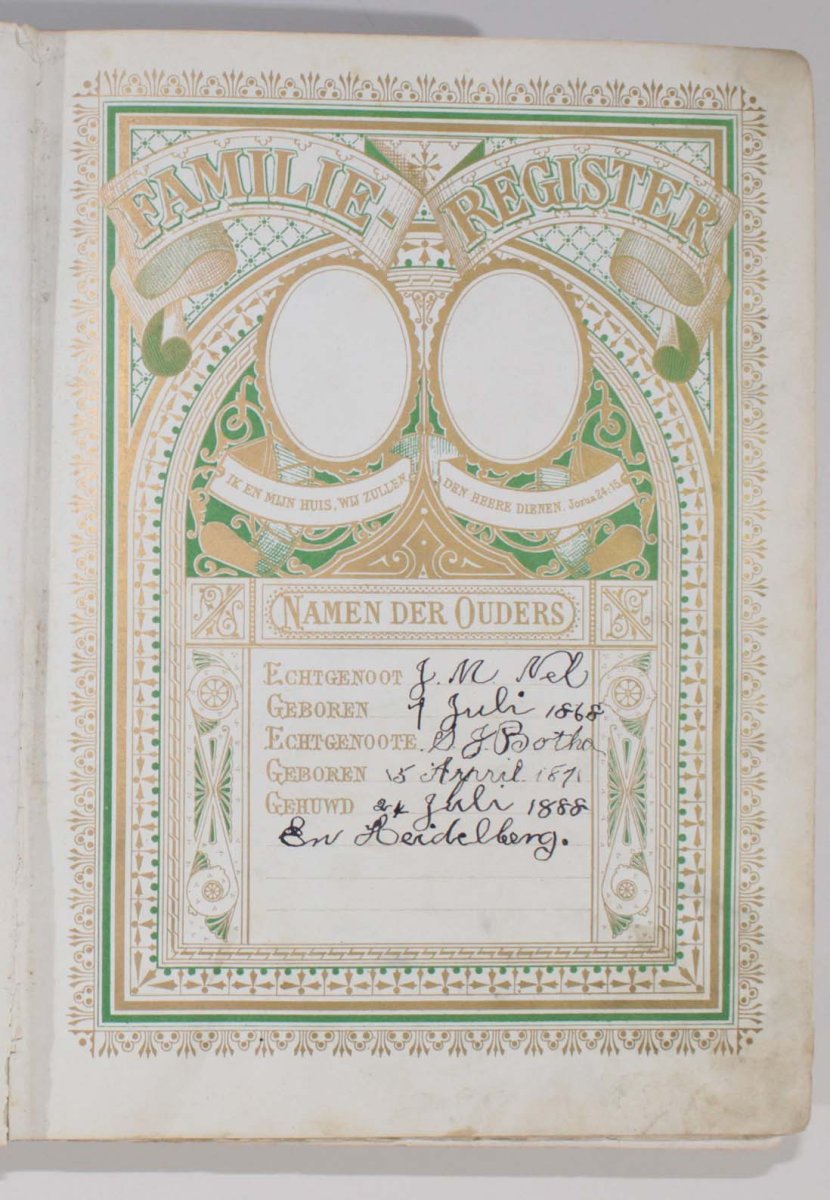 FAMILIE-REGISTER
IK EN MIJN HUIS, WIJ ZULLEN
DEN HEERE DIENEN. Jozua 24:15
NAMEN DER OUDERS
ECHTGENOOT J. M. Nel
GEBOREN 7 Juli 1868
ECHTGENOOTE S J Botha
GEBOREN 15 April 1871
GEHUWD 24 Juli 1888
En Heidelberg.